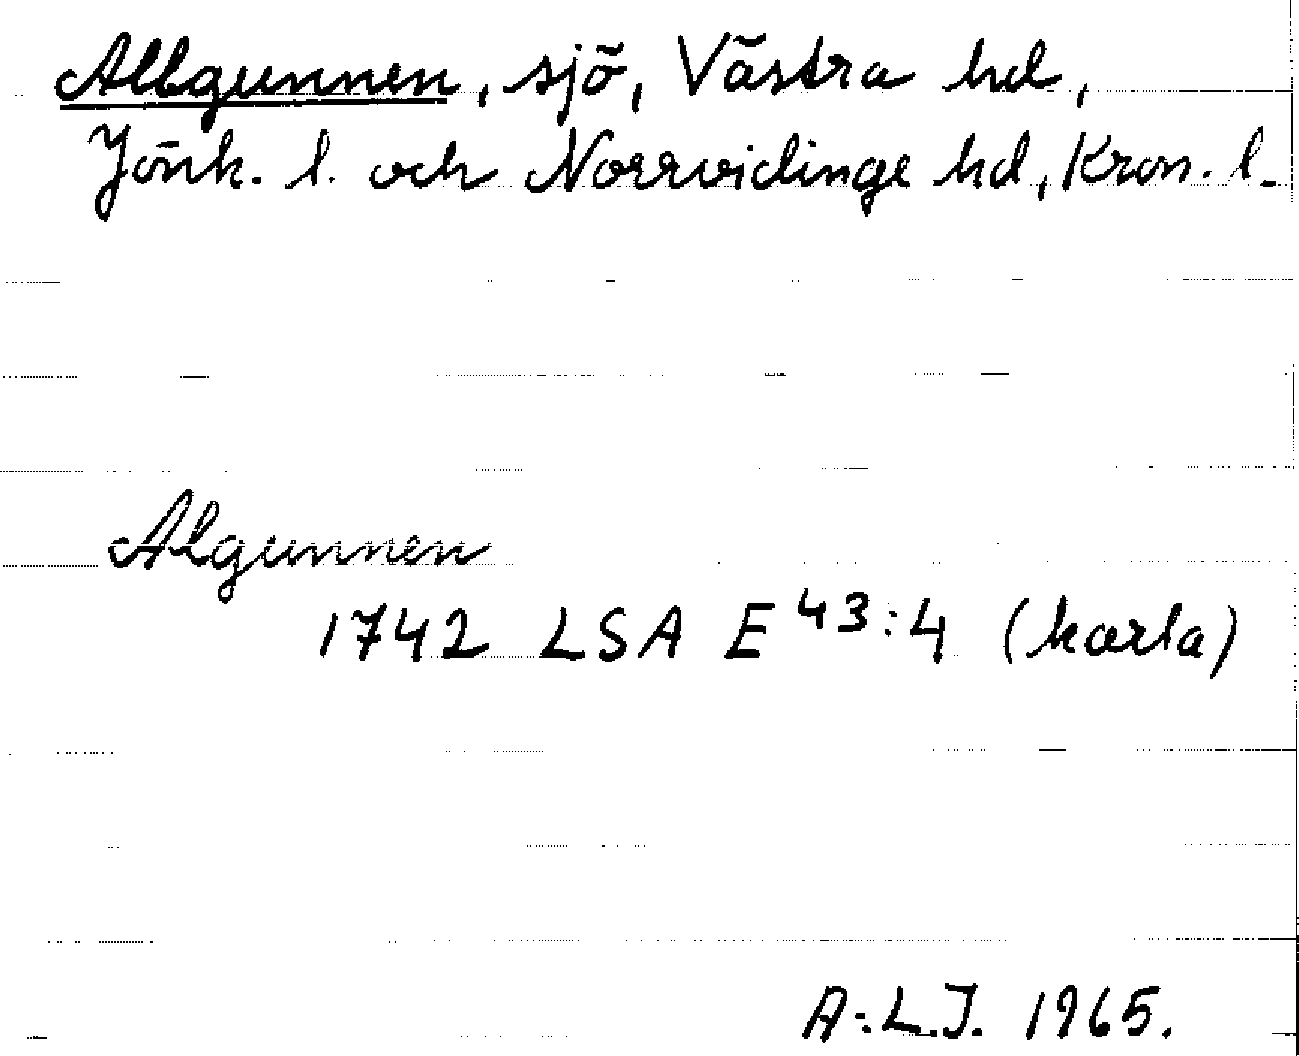 Allgunnen, sjö, Västra hd,
Jönk. l. och Norrvidinge hd, Kron. l.
Algunnen
1742 LSA E 43:4 (karta)
A.L.J. 1965.